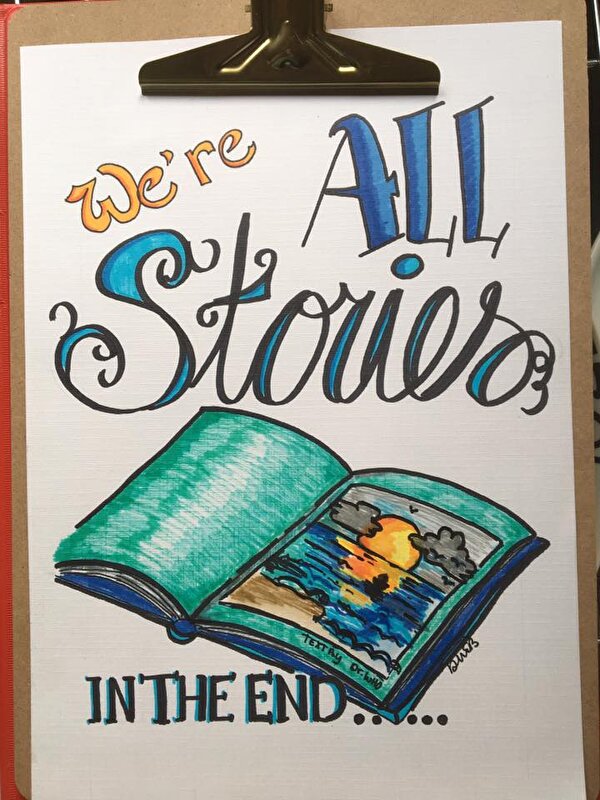 We're ALL
Stories
TEXT By Dr. WHO
IN THE END......